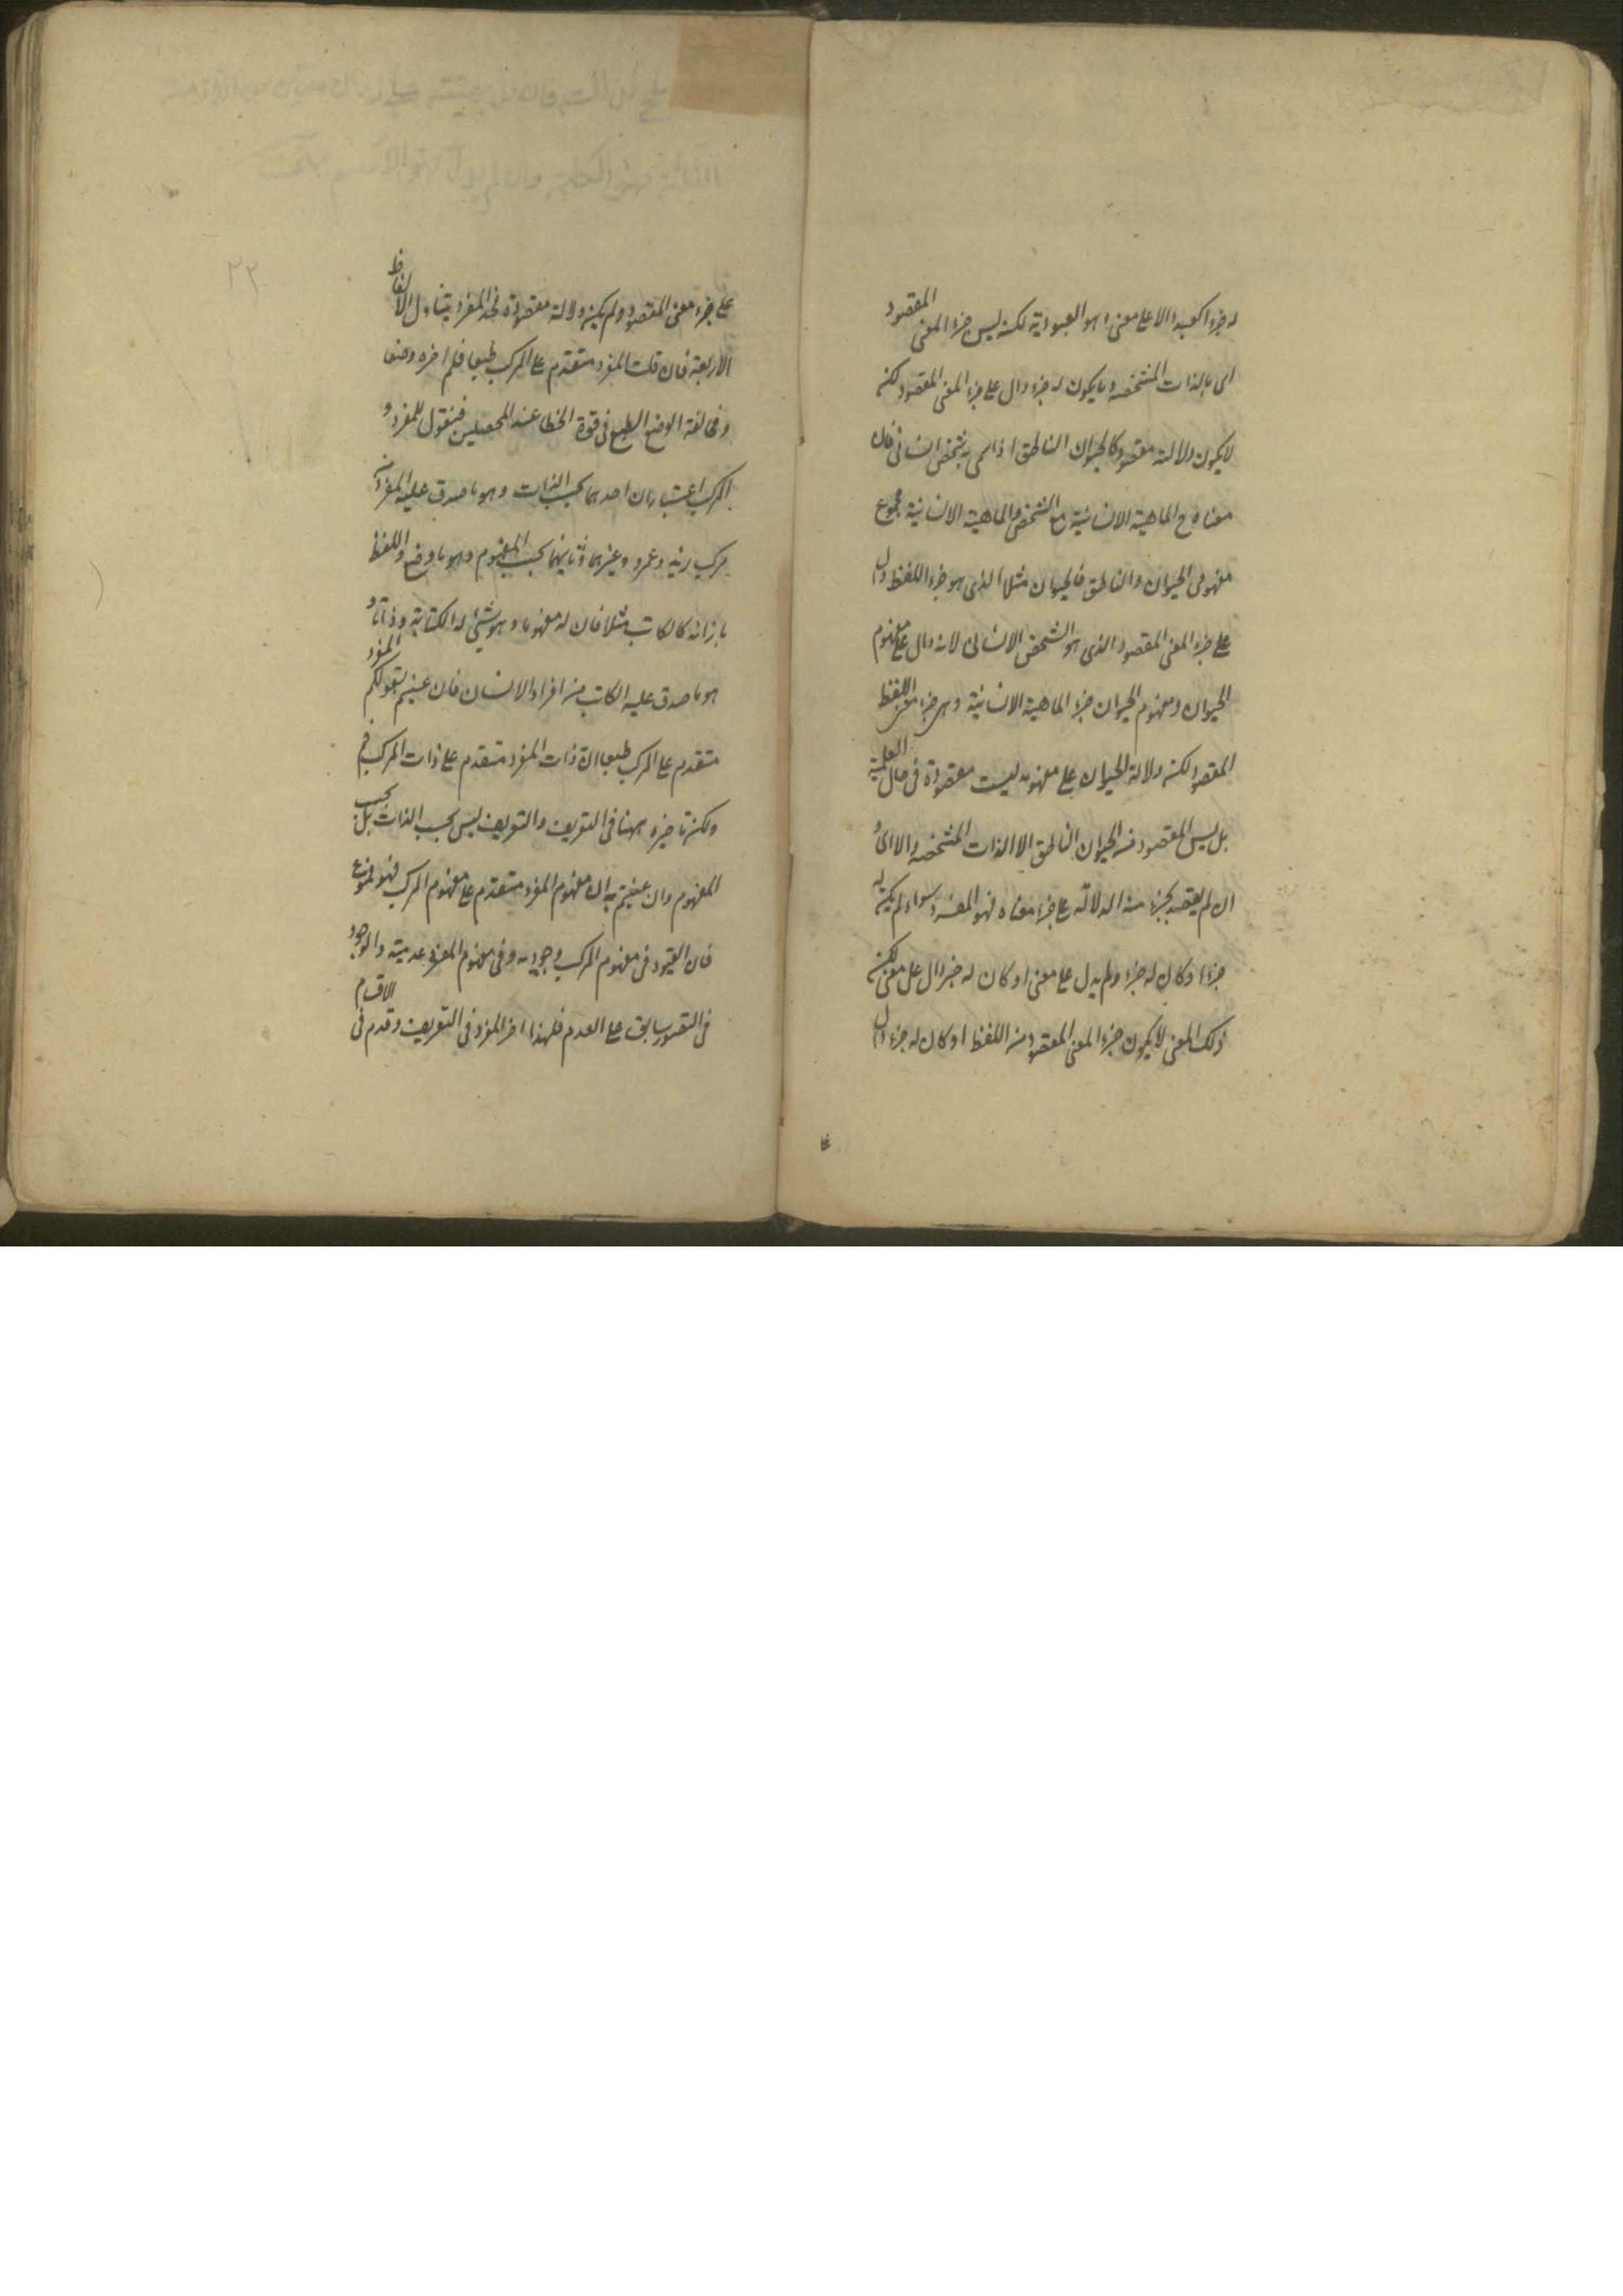 له جزء اكعبد دالا على معنى وهو العبودية لكنه ليس جزء المعنى المقصود
اى بالذات المتشخصه وما يكون له جزء دال على جزء المعنى المقصود لكن
لا يكون دلالته مقصود كالحيوان الناطق اذا سمى به شخص انسانى فان
معناه ح الماهية الانسانية مع التشخص والماهية الانسانية مجموع
مفهومى الحيوان والناطق فالحيوان مثلا الذى هو جزء اللفظ دال
على جزء المعنى المقصود الذى هو الشخص الانسانى لانه دال على مفهوم
الحيوان ومفهوم الحيوان جزء الماهية الانسانية وهى جزء معنى اللفظ
المقصود لكنه دلالة الحيوان على مفهومه ليست مقصودة فى حال العلمية
بل ليس المقصود من الحيوان الناطق الا الذات المتشخصه والا اى و
ان لم يقصد بجزء منه الدلالة على جزء معناه فهو المفرد سواء لم يكن له
جزء او كان له جزء ولم يدل على معنى او كان له جزء دال على معنى لكن
ذلك المعنى لا يكون جزء المعنى المقصود من اللفظ او كان له جزء دال
على جزء معنى المقصود ولم يكن دلالة مقصودة فحد المفرد يتناول الالفاظ
الاربعة فان قلت المفرد متقدم على المركب طبعا فلم اخره وضعا
ومخالفة الوضع الطبع فى قوة الخطا عند المحصلين فنقول للمفرد و
المركب اعتباران احدهما بحسب الذات وهو ما صدق عليه المفرد من
مركب زيد وعمرو وغيرهما وثانيهما بحسب المفهوم وهو ما وضع اللفظ
بازائه كالكاتب مثلا فان له مفهوما وهو شئ له الكتابة وذاتا و
هو ما صدق عليه الكاتب من افراد الانسان فان عنيتم بقولكم المفرد
متقدم على المركب طبعا ان ذات المفرد متقدم على ذات المركب فم
ولكن تاخيره ههنا فى التعريف والتعريف ليس بحسب الذات بل بحسب
المفهوم وان عنيتم به ان مفهوم المفرد متقدم على مفهوم المركب فهو ممنوع
فان القيود فى مفهوم المركب وجودية وفى مفهوم المفرد عدمية والوجود
فى التصور سابق على العدم فلهذا اخر المفرد فى التعريف وقدم فى الاقسام